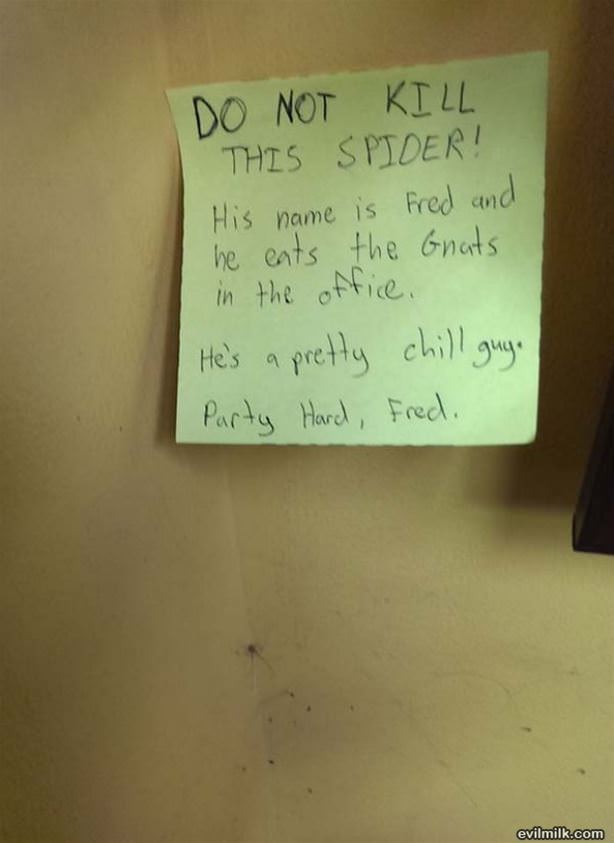 DO NOT KILL
THIS SPIDER!
His name is Fred and
he eats the Gnats
in the office.
He's a pretty chill guy.
Party Hard, Fred.
evilmilk.com